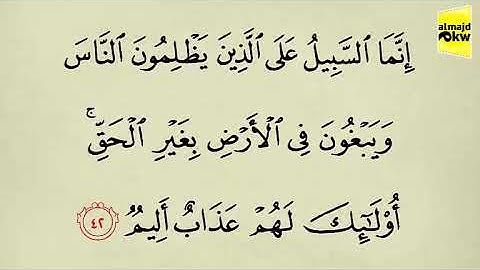 almajd
kw
إِنَّمَا ٱلسَّبِيلُ عَلَى ٱلَّذِينَ يَظْلِمُونَ ٱلنَّاسَ
وَيَبْغُونَ فِى ٱلْأَرْضِ بِغَيْرِ ٱلْحَقِّ ۚ
أُو۟لَـٰٓئِكَ لَهُمْ عَذَابٌ أَلِيمٌ ٤٢